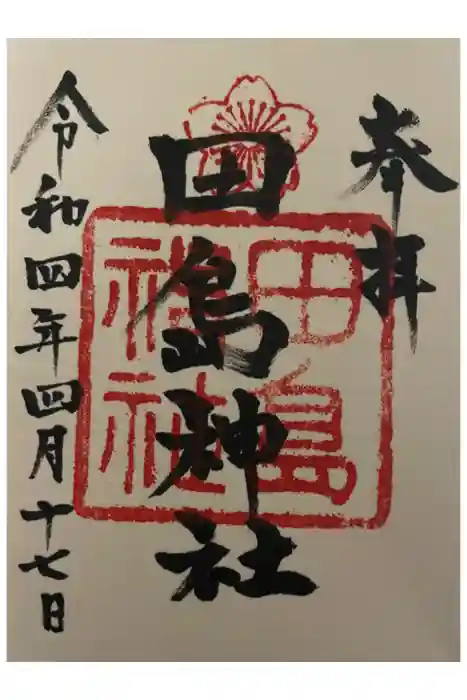 奉拝
田島神社
田島神社
令和四年四月十七日